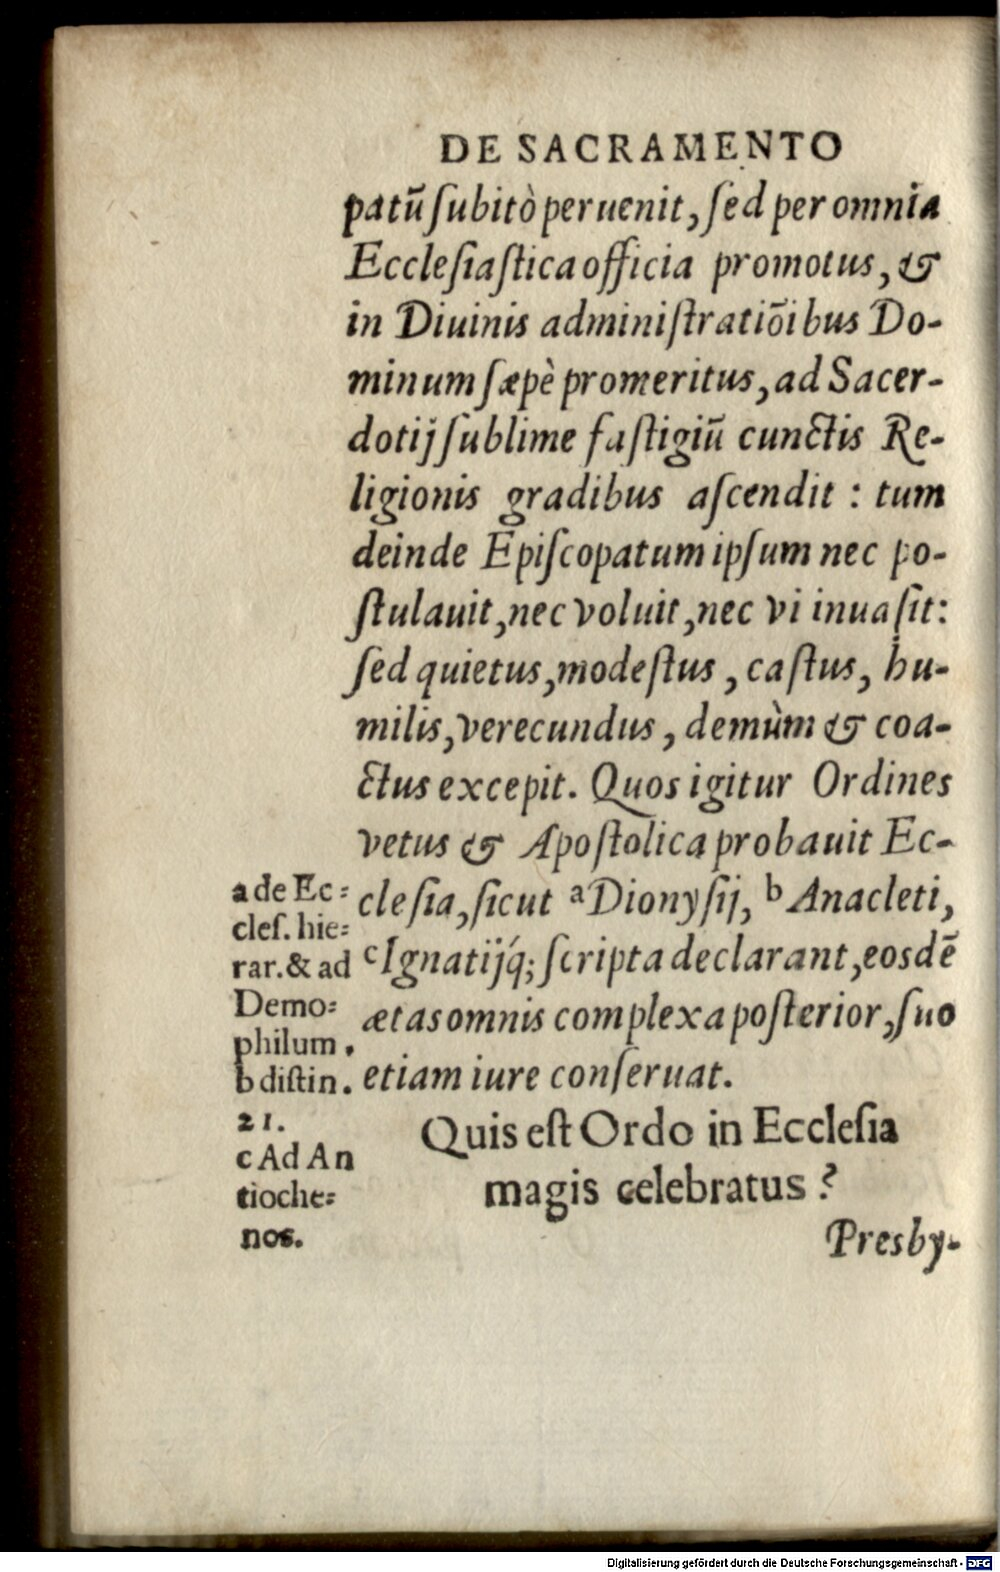 DE SACRAMENTO
patū ſubitò peruenit, ſed per omnia
Eccleſiaſtica officia promotus, &
in Diuinis adminiſtratiōibus Do-
minum ſæpè promeritus, ad Sacer-
dotij ſublime faſtigiū cunctis Re-
ligionis gradibus aſcendit : tum
deinde Epiſcopatum ipſum nec po-
ſtulauit, nec voluit, nec vi inuaſit:
ſed quietus, modeſtus, caſtus, hu-
milis, verecundus, demùm & coa-
ctus excepit. Quos igitur Ordines
vetus & Apoſtolica probauit Ec-
cleſia, ſicut ᵃ Dionyſij, ᵇ Anacleti,
ᶜ Ignatijq́; ſcripta declarant, eosdē
ætas omnis complexa poſterior, ſuo
etiam iure conſeruat.
a de Ec=
cleſ. hie=
rar. & ad
Demo=
philum.
b diſtin.
21.
c Ad An
tioche=
nos.
Quis eſt Ordo in Eccleſia
magis celebratus?
Presby-
Digitalisierung gefördert durch die Deutsche Forschungsgemeinschaft - DFG